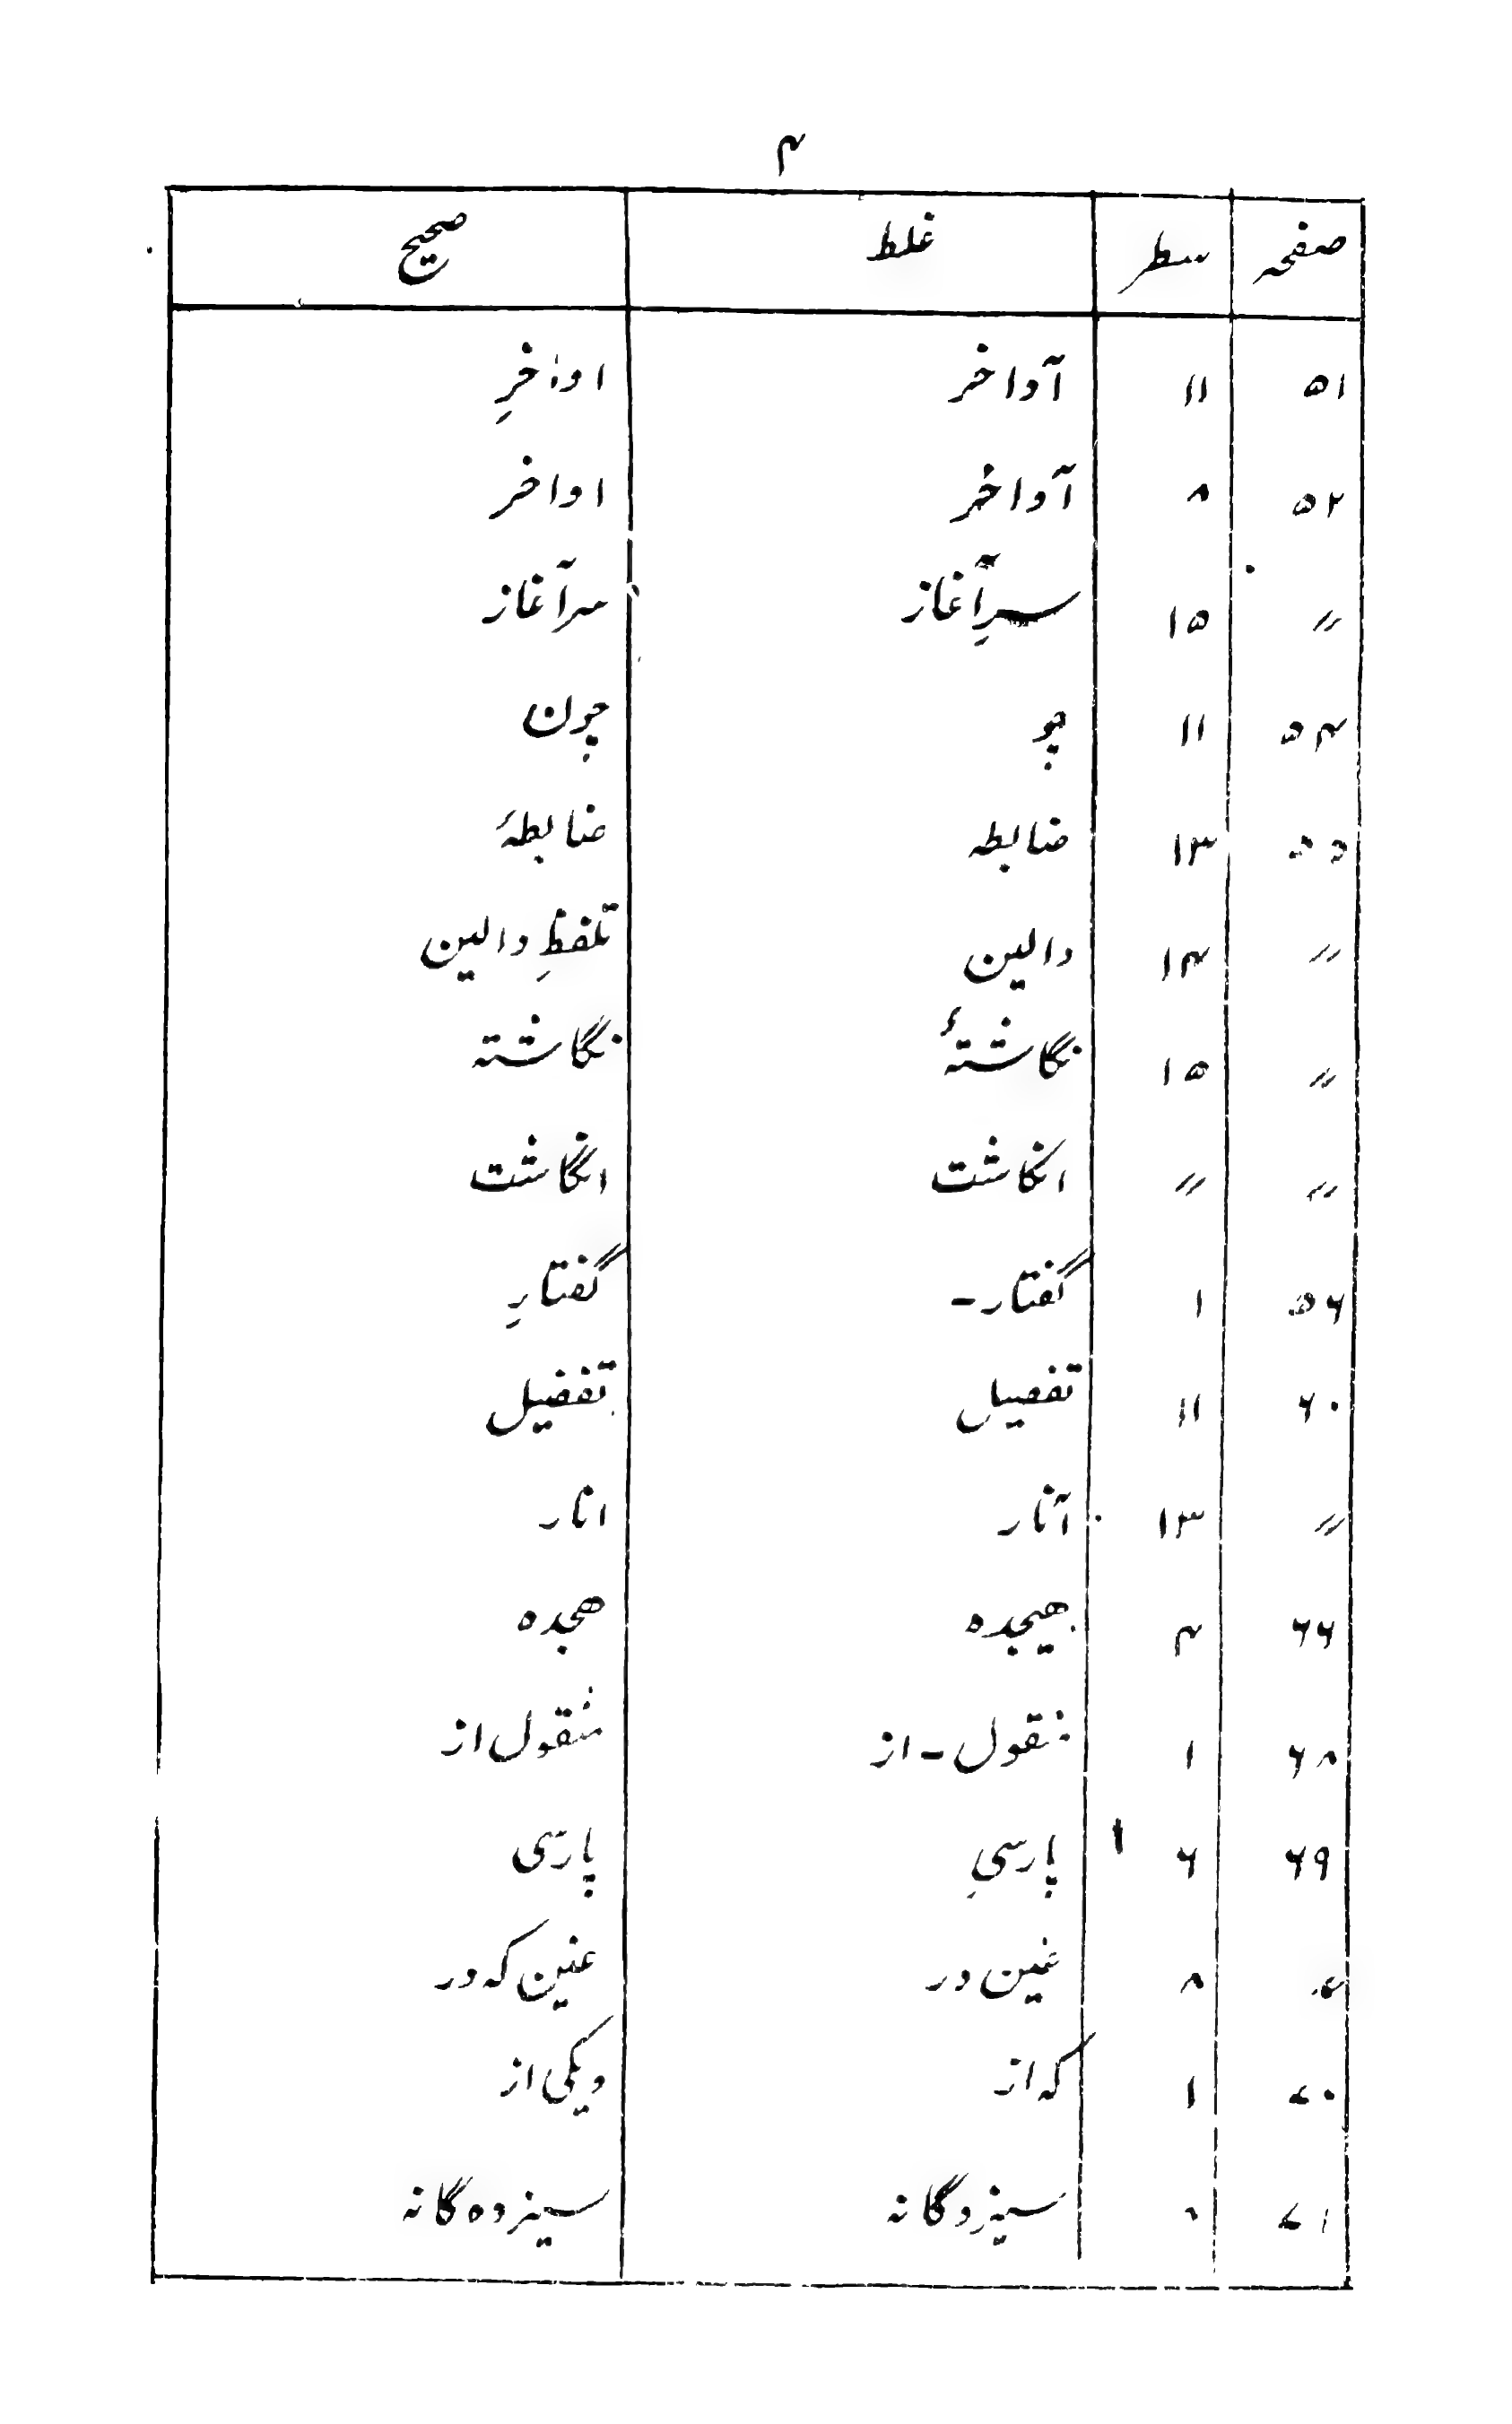 ۴
صفحہ سطر غلط صحیح
۵۱ ۱۱ آواخر اواخرِ
۵۲ ۸ آواخر اواخر
〃 ۱۵ سرِآغاز سرآغاز
۵۴ ۱۱ چو چون
۵۵ ۱۳ ضابطہ ضابطۂ
〃 ۱۴ دالین تلفظِ دالین
〃 ۱۵ نگاشتۂ نگاشتہ
〃 〃 انکاشت انگاشت
۵۶ ۱ گفتار- گفتارِ
۶۰ ۱۱ تفصیل تفضیل
〃 ۱۳ آثار اثار
۶۶ ۴ ھیجدہ ھجدہ
۶۸ ۱ منقول-از منقول از
۶۹ ۶ پارسیِ پارسی
۸ غین در غین کہ در
۷۰ ۱ کہ از ویکی از
۷۱ سیزدگانہ سیزدہ گانہ